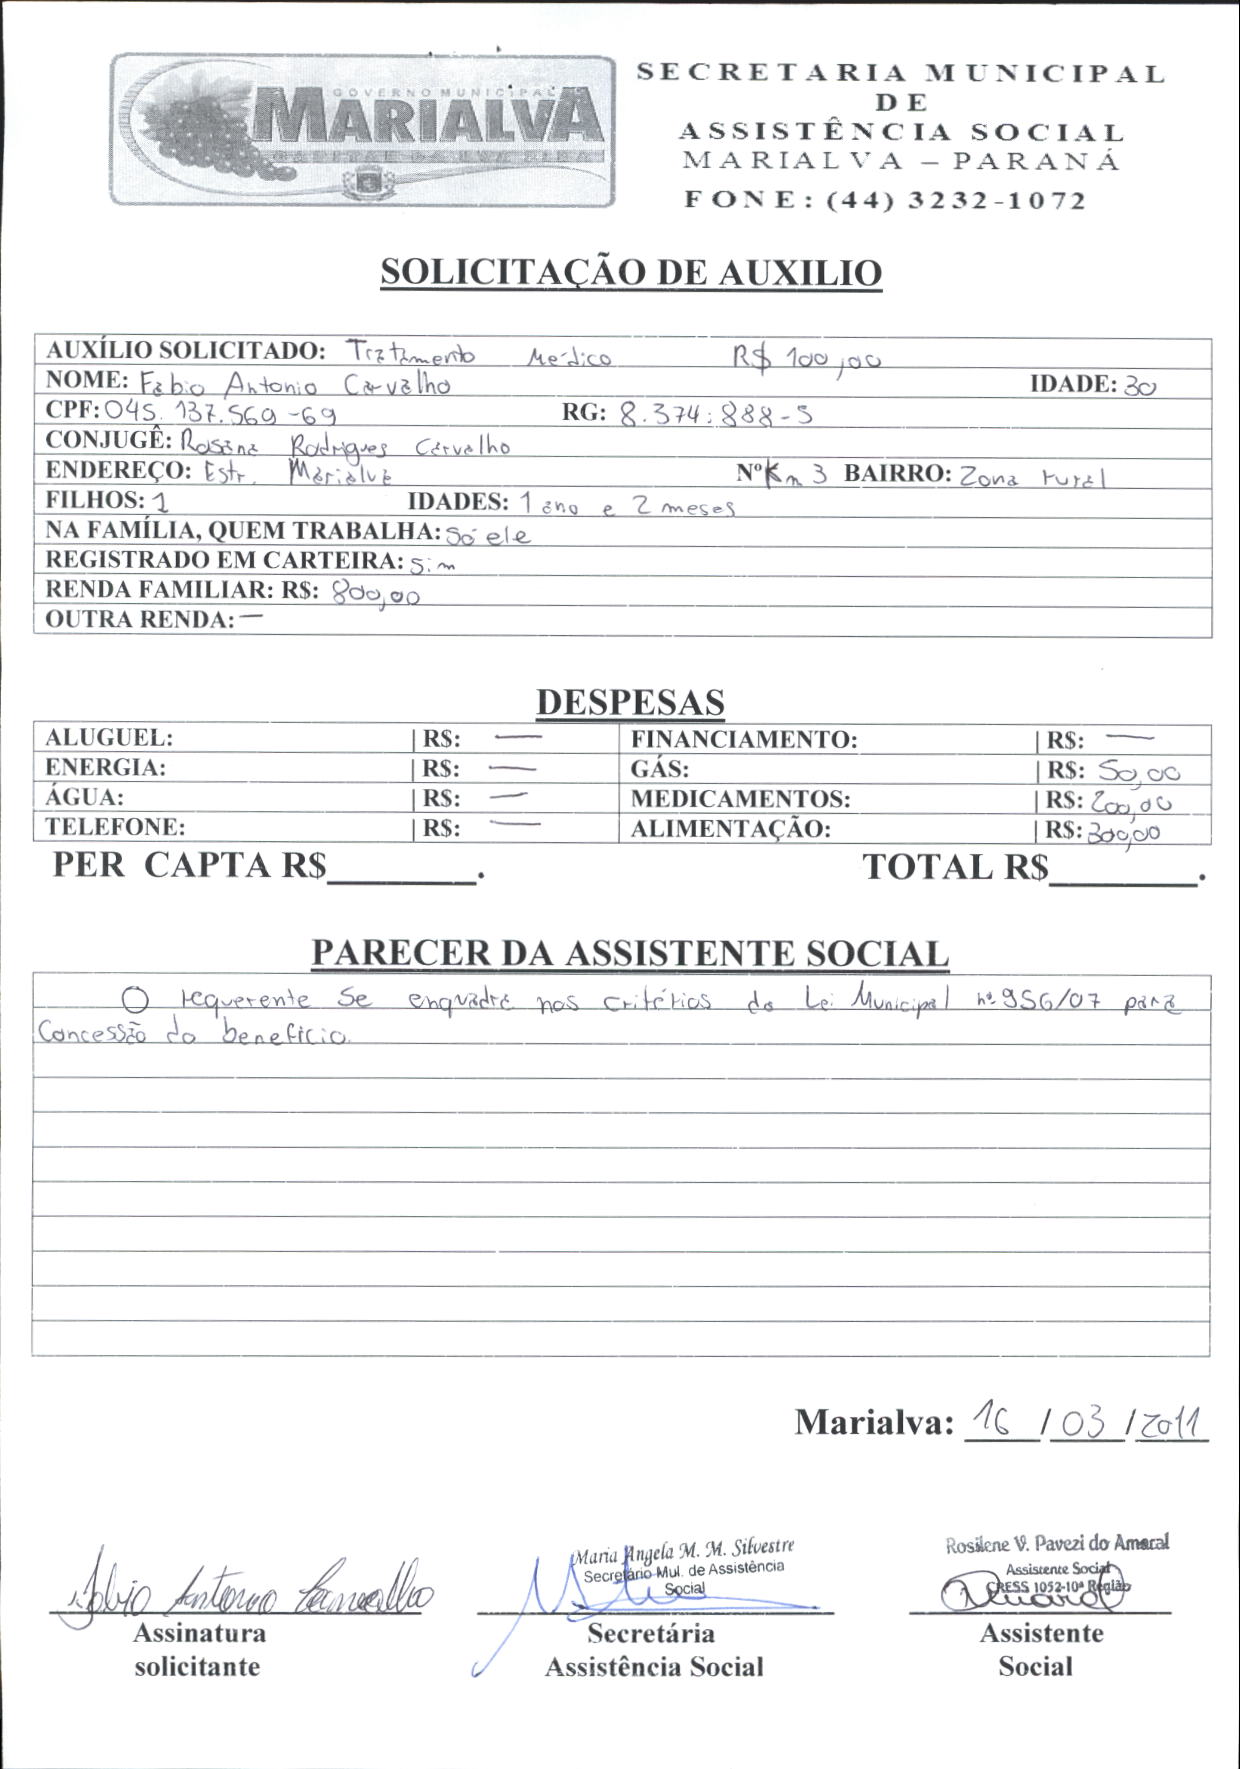 GOVERNO MUNICIPAL
MARIALVA
CAPITAL DA UVA FINA
SECRETARIA MUNICIPAL
DE
ASSISTÊNCIA SOCIAL
MARIALVA – PARANÁ
FONE: (44) 3232-1072
SOLICITAÇÃO DE AUXILIO
AUXÍLIO SOLICITADO: Tratamento Médico R$ 100,00
NOME: Fabio Antonio Carvalho IDADE: 30
CPF: 045.137.569-69 RG: 8.374.888-5
CONJUGÊ: Rosana Rodrigues Carvalho
ENDEREÇO: Estr. Marialva Nº Km 3 BAIRRO: Zona rural
FILHOS: 1 IDADES: 1 ano e 2 meses
NA FAMÍLIA, QUEM TRABALHA: Só ele
REGISTRADO EM CARTEIRA: Sim
RENDA FAMILIAR: R$: 800,00
OUTRA RENDA: —
DESPESAS
ALUGUEL: | R$: — FINANCIAMENTO: | R$: —
ENERGIA: | R$: — GÁS: | R$: 50,00
ÁGUA: | R$: — MEDICAMENTOS: | R$: 200,00
TELEFONE: | R$: — ALIMENTAÇÃO: | R$: 300,00
PER CAPTA R$________. TOTAL R$________.
PARECER DA ASSISTENTE SOCIAL
O requerente se enquadra nos critérios da Lei Municipal nº 956/07 para
Concessão do benefício.
Marialva: 16 / 03 / 2011
Fabio Antonio Carvalho
Maria Angela M. M. Silvestre
Secretário Mul. de Assistência
Social
Rosilene V. Pavezi do Amaral
Assistente Social
CRESS 1052-10ª Região
Assinatura
solicitante
Secretária
Assistência Social
Assistente
Social